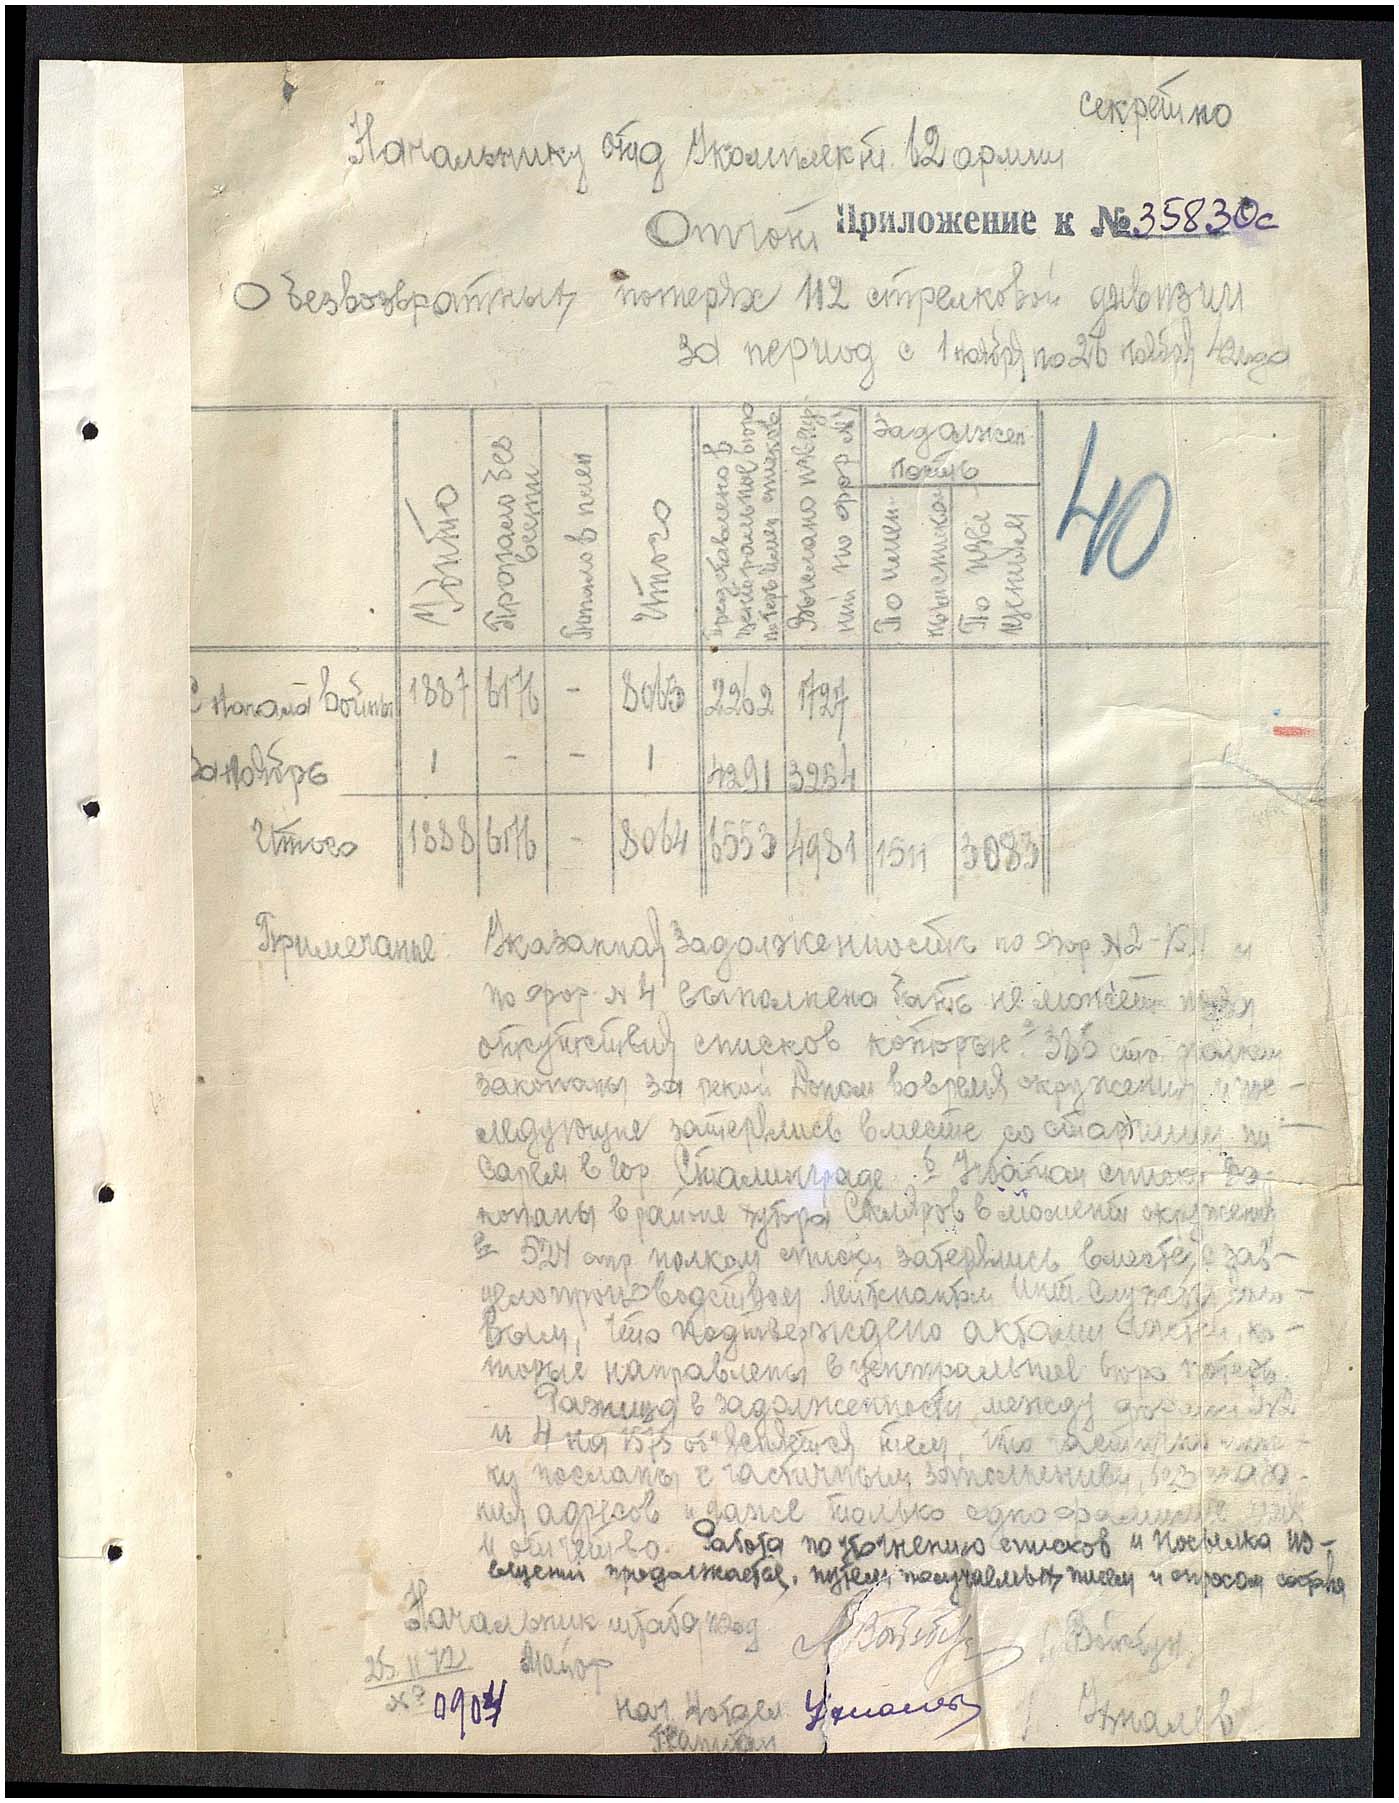 секретно
Начальнику отд Укомплект. 62 армии
Отчот Приложение к № 35830с
О безвозвратных потерях 112 стрелковой дивизии
за период с 1 ноября по 26 ноября 42 года
Убито
Пропало без вести
Попало в плен
Итого
Представлено в центральное бюро потерь имен списков
Выслано извещений по фор №4
Задолженность
По имен спискам
По извещениям
40
С начала войны 1887 6176 - 8063 2262 1727
За ноябрь 1 - - 1 4291 3254
Итого 1888 6176 - 8064 6553 4981 1511 3083
Примечание: Указанная задолженность по фор №2-1511 и
по фор. №4 выполнена быть не может из за
отсутствия списков которые: 385 стр. полком
закопаны за рекой Доном во время окружения и
следующие затерялись вместе со старшим пи
сарем в гор Сталинграде. б списки за-
копаны в районе хутора Скляров в момент окружения
в 524 стр полком списки затерялись вместе с зав-
делопроизводством лейтенантом Инт. Службы
вым, что подтверждено актами частей, ко-
торые направлены в центральное бюро потерь.
Разница в задолженности между формами №2
и 4 на 1575 объясняется тем, что
ки посланы с частичным заполнением, без
ния адресов и даже только одно фамилие имя
и отчество. Работа по уточнению списков и посылка из-
вещений продолжается, путем получаемых писем и опросом состава
Начальник штаба 112 сд
25 11 42 Майор
№ 0904
нач. 4 отдел
Капитан